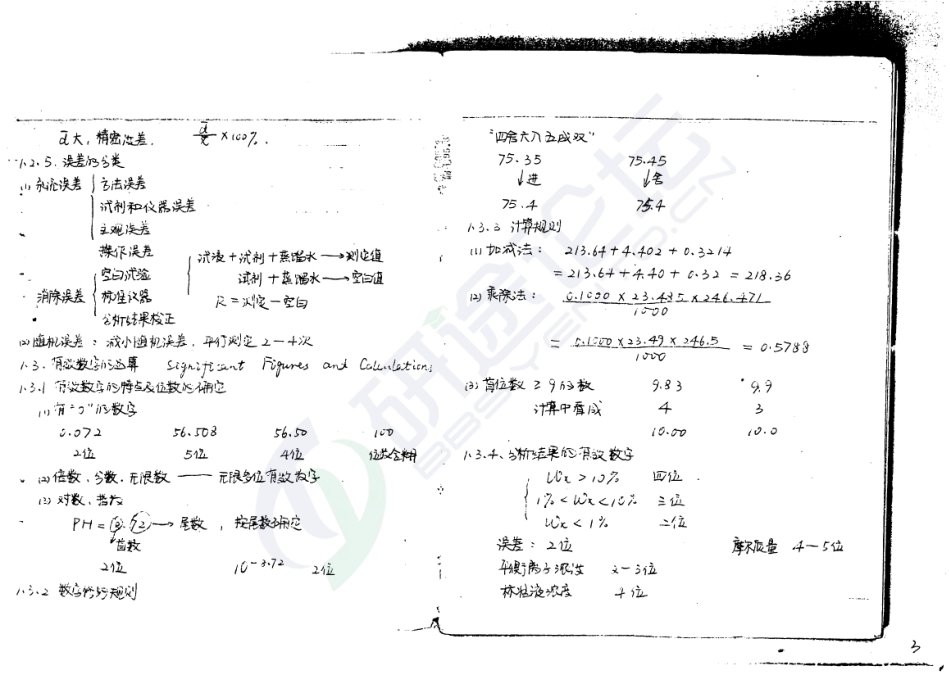 d̄大，精密度差． d̄/x̄ ×100%．
1.2.5．误差的分类
(1) 系统误差 方法误差
试剂和仪器误差
主观误差
操作误差
消除误差 空白试验
标准仪器
分析结果校正
试液＋试剂＋蒸馏水→测定值
试剂＋蒸馏水→空白值
R＝测定－空白
(2) 随机误差：减小随机误差，平行测定2－4次
1.3．有效数字的运算 Significant Figures and Calculations
1.3.1 有效数字的特点及位数的确定
(1) 有"0"的数字
0.072 56.508 56.50 100
2位 5位 4位 位数含糊
(2) 倍数、分数、无限数 —— 无限多位有效数字
(3) 对数、指数
PH＝ →尾数，按尾数确定
首数
2位 10^-3.72 2位
1.3.2 数字修约规则
"四舍六入五成双"
75.35 75.45
↓进 ↓舍
75.4 75.4
1.3.3 计算规则
(1) 加减法： 213.64+4.402+0.3214
=213.64+4.40+0.32=218.36
(2) 乘除法： 0.1000×23.485×246.471
1000
= 0.1000×23.49×246.5 = 0.5788
1000
(3) 首位数≥9的数 9.83 9.9
计算中看成 4 3
10.00 10.0
1.3.4．分析结果的有效数字
Wx>10% 四位
1%<Wx<10% 三位
Wx<1% 二位
误差：2位 摩尔质量 4－5位
平衡离子浓度 2－3位
标准液浓度 4位
3
研途论坛
BBS.YENTU.CN